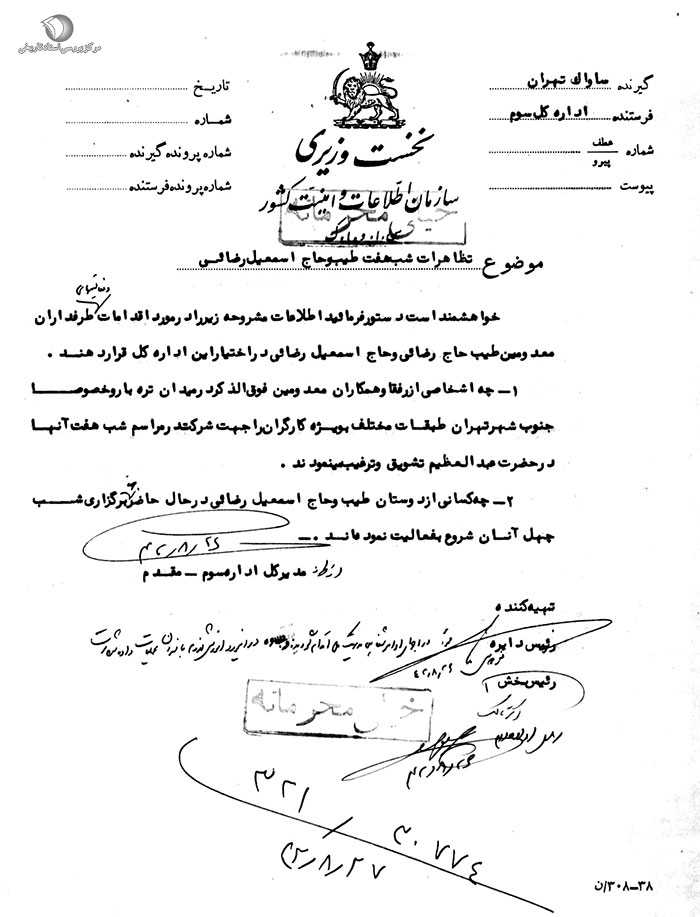 مرکز بررسی اسناد تاریخی
گیرنده ساواک تهران
فرستنده اداره کل سوم
شماره عطف
پیرو
پیوست
نخست وزیری
سازمان اطلاعات و امنیت کشور
خیلی محرمانه
تاریخ
شماره
شماره پرونده گیرنده
شماره پرونده فرستنده
موضوع تظاهرات شب هفت طیب و حاج اسمعیل رضائی
خواهشمند است دستور فرمائید اطلاعات مشروحه زیر را در مورد اقدامات طرفداران
معدومین طیب حاج رضائی و حاج اسمعیل رضائی در اختیار این اداره کل قرار دهند .
۱ــ چه اشخاصی از رفقا و همکاران معدومین فوق الذکر در میدان تره بار و خصوصا
جنوب شهر تهران طبقات مختلف بویژه کارگران را جهت شرکت در مراسم شب هفت آنها
در حضرت عبدالعظیم تشویق و ترغیب مینمودند .
۲ــ چه کسانی از دوستان طیب و حاج اسمعیل رضائی در حال حاضر برگزاری شب
چهل آنان شروع بفعالیت نموده اند .ــ
۴۲/۸/۲۶
از طرف مدیرکل اداره سوم ــ مقدم
تهیه کننده
رئیس دایره
۴۲/۸/۲۶
رئیس بخش ۱
خیلی محرمانه
۴۲/۸/۲۶
۳۲۱/۳۰۷۷۴
۴۲/۸/۲۷
۳۸ــ۳۰۸/ن